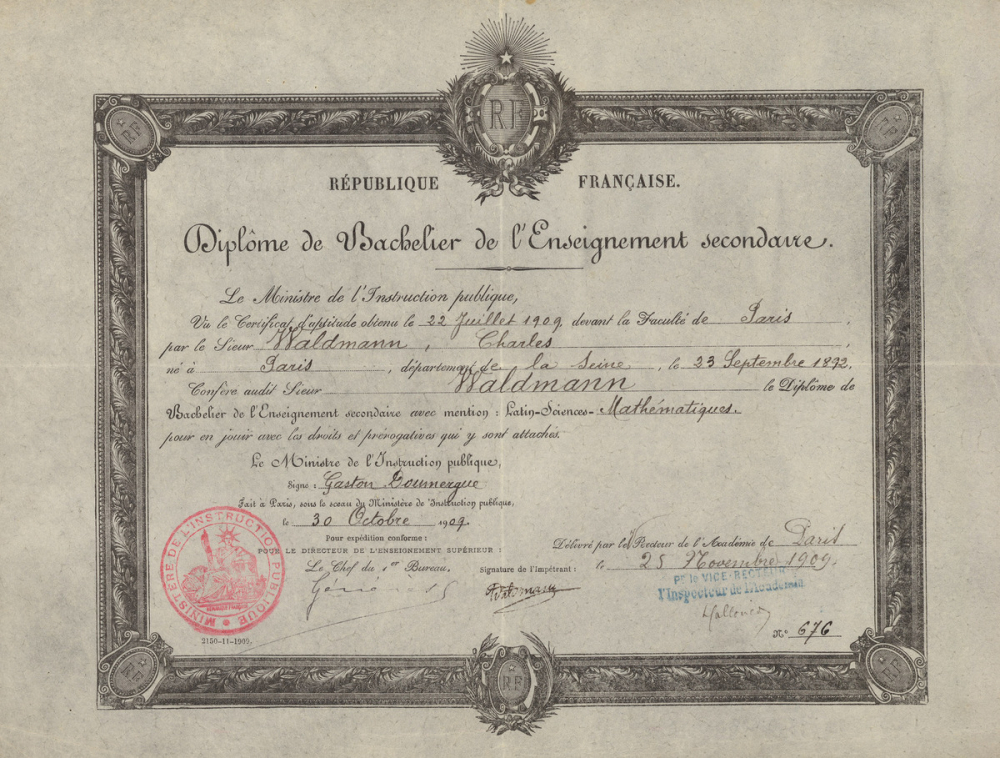 RF
RF
RF
RÉPUBLIQUE FRANÇAISE.
Diplôme de Bachelier de l'Enseignement secondaire.
Le Ministre de l'Instruction publique,
Vu le Certificat d'aptitude obtenu le 22 Juillet 1909, devant la Faculté de Paris,
par le Sieur Waldmann, Charles,
né à Paris, département de la Seine, le 23 Septembre 1892,
Confère audit Sieur Waldmann le Diplôme de
Bachelier de l'Enseignement secondaire avec mention : Latin-Sciences-Mathématiques.
pour en jouir avec les droits et prérogatives qui y sont attachés.
Le Ministre de l'Instruction publique,
Signé : Gaston Doumergue
Fait à Paris, sous le sceau du Ministère de l'Instruction publique,
le 30 Octobre 1909.
Pour expédition conforme :
POUR LE DIRECTEUR DE L'ENSEIGNEMENT SUPÉRIEUR :
Le Chef du 1er Bureau,
Signature de l'Impétrant :
Délivré par le Recteur de l'Académie de Paris
le 25 Novembre 1909.
Pr le VICE-RECTEUR
l'Inspecteur de l'Académie
No 676
MINISTÈRE DE L'INSTRUCTION PUBLIQUE
2150-11-1909.
RF
RF
RF